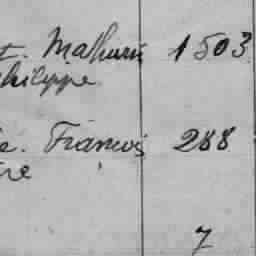 t. Mathurin 1503
Philippe
e. Francois 288
re
7